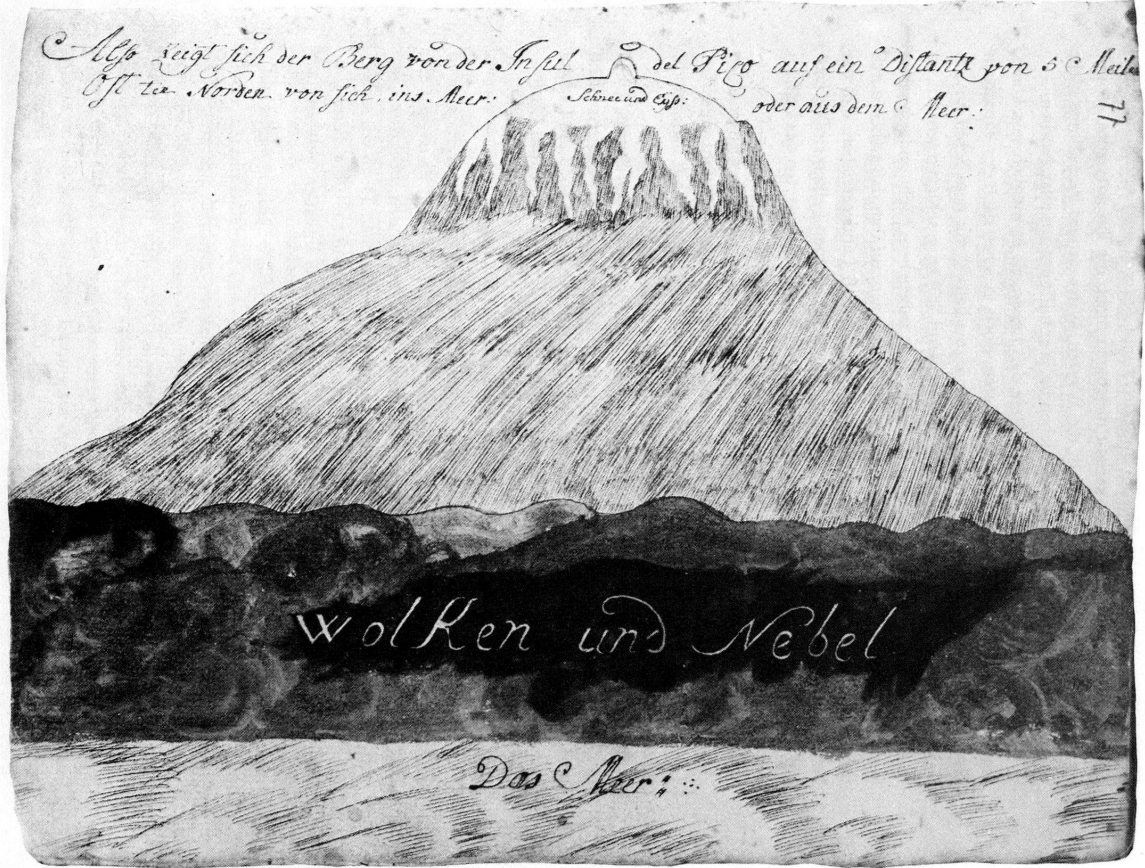 Also zeigt sich der Berg von der Insul del Pico auf ein Distantz von 5 Meilen
Ost ten Norden von sich, ins Meer: oder aus dem Meer:
Schnee und Eyß:
77
Wolken und Nebel
Das Meer: